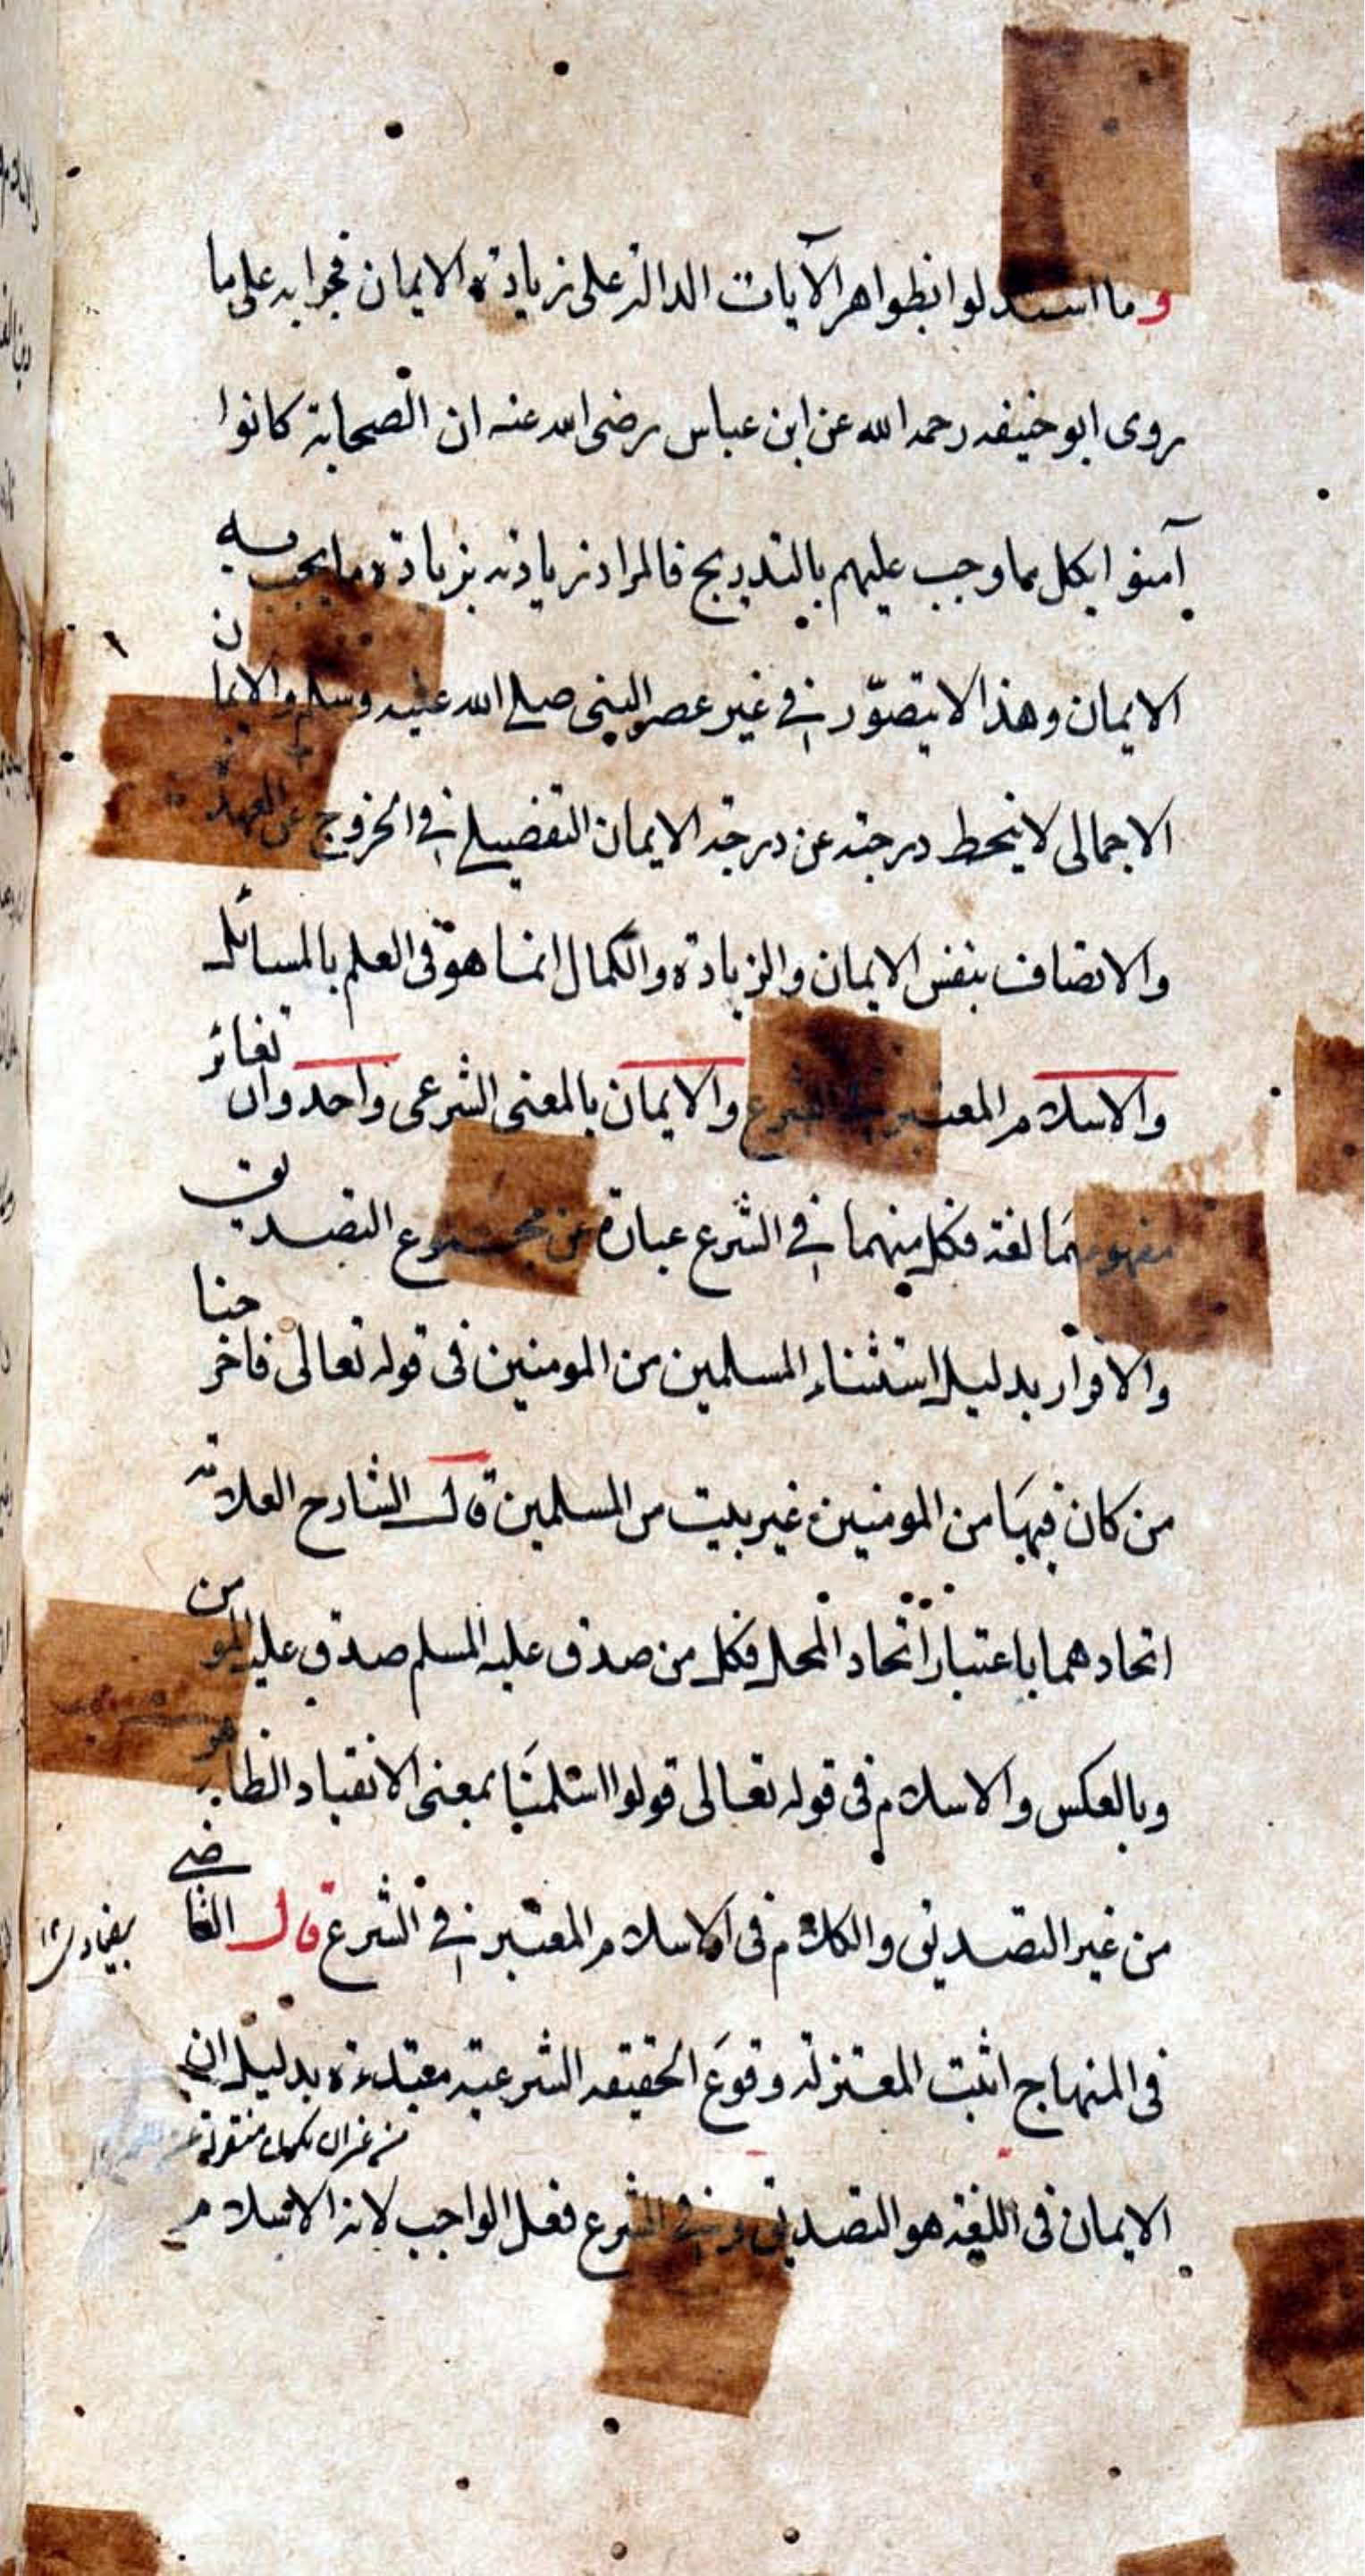 وما استدلوا بظواهر الآيات الدالة على زيادة الايمان فجوابه على ما
روى ابو حنيفه رحمه الله عن ابن عباس رضى الله عنه ان الصحابة كانوا
آمنوا بكل مما وجب عليهم بالتدريج فالمراد زيادته بزيادة ما يجب به
الايمان وهذا لا يتصوّر في غير عصر النبى صلى الله عليه وسلم والايمان
الاجمالى لا ينحط درجته عن درجة الايمان التفضيلي في الخروج عن العهدة
والاتصاف بنفس الايمان والزيادة والكمال انما هو فى العلم بالمسائل
والاسلام المعتبر في الشرع والايمان بالمعنى الشرعى واحد وان تغائر
مفهومهما لغة فكل منهما في الشرع عبارة عن مجموع التصديق
والاقرار بدليل استثناء المسلمين من المومنين فى قوله تعالى فاخرجنا
من كان فيها من المومنين غير بيت من المسلمين قال الشارح العلامة
اتحادهما باعتبار اتحاد المحل فكل من صدق عليه المسلم صدق عليه المومن
وبالعكس والاسلام فى قوله تعالى قولوا اسلمنا بمعنى الانقياد الظاهر
من غير التصديق والكلام فى الاسلام المعتبر في الشرع قال القاضي
بيضاوى ١٢
فى المنهاج اثبت المعتزلة وقوع الحقيقه الشرعية مبتدءة بدليل ان
من غير ان يكون منقولة
الايمان فى اللغة هو التصديق وفي الشرع فعل الواجب لانه الاسلام